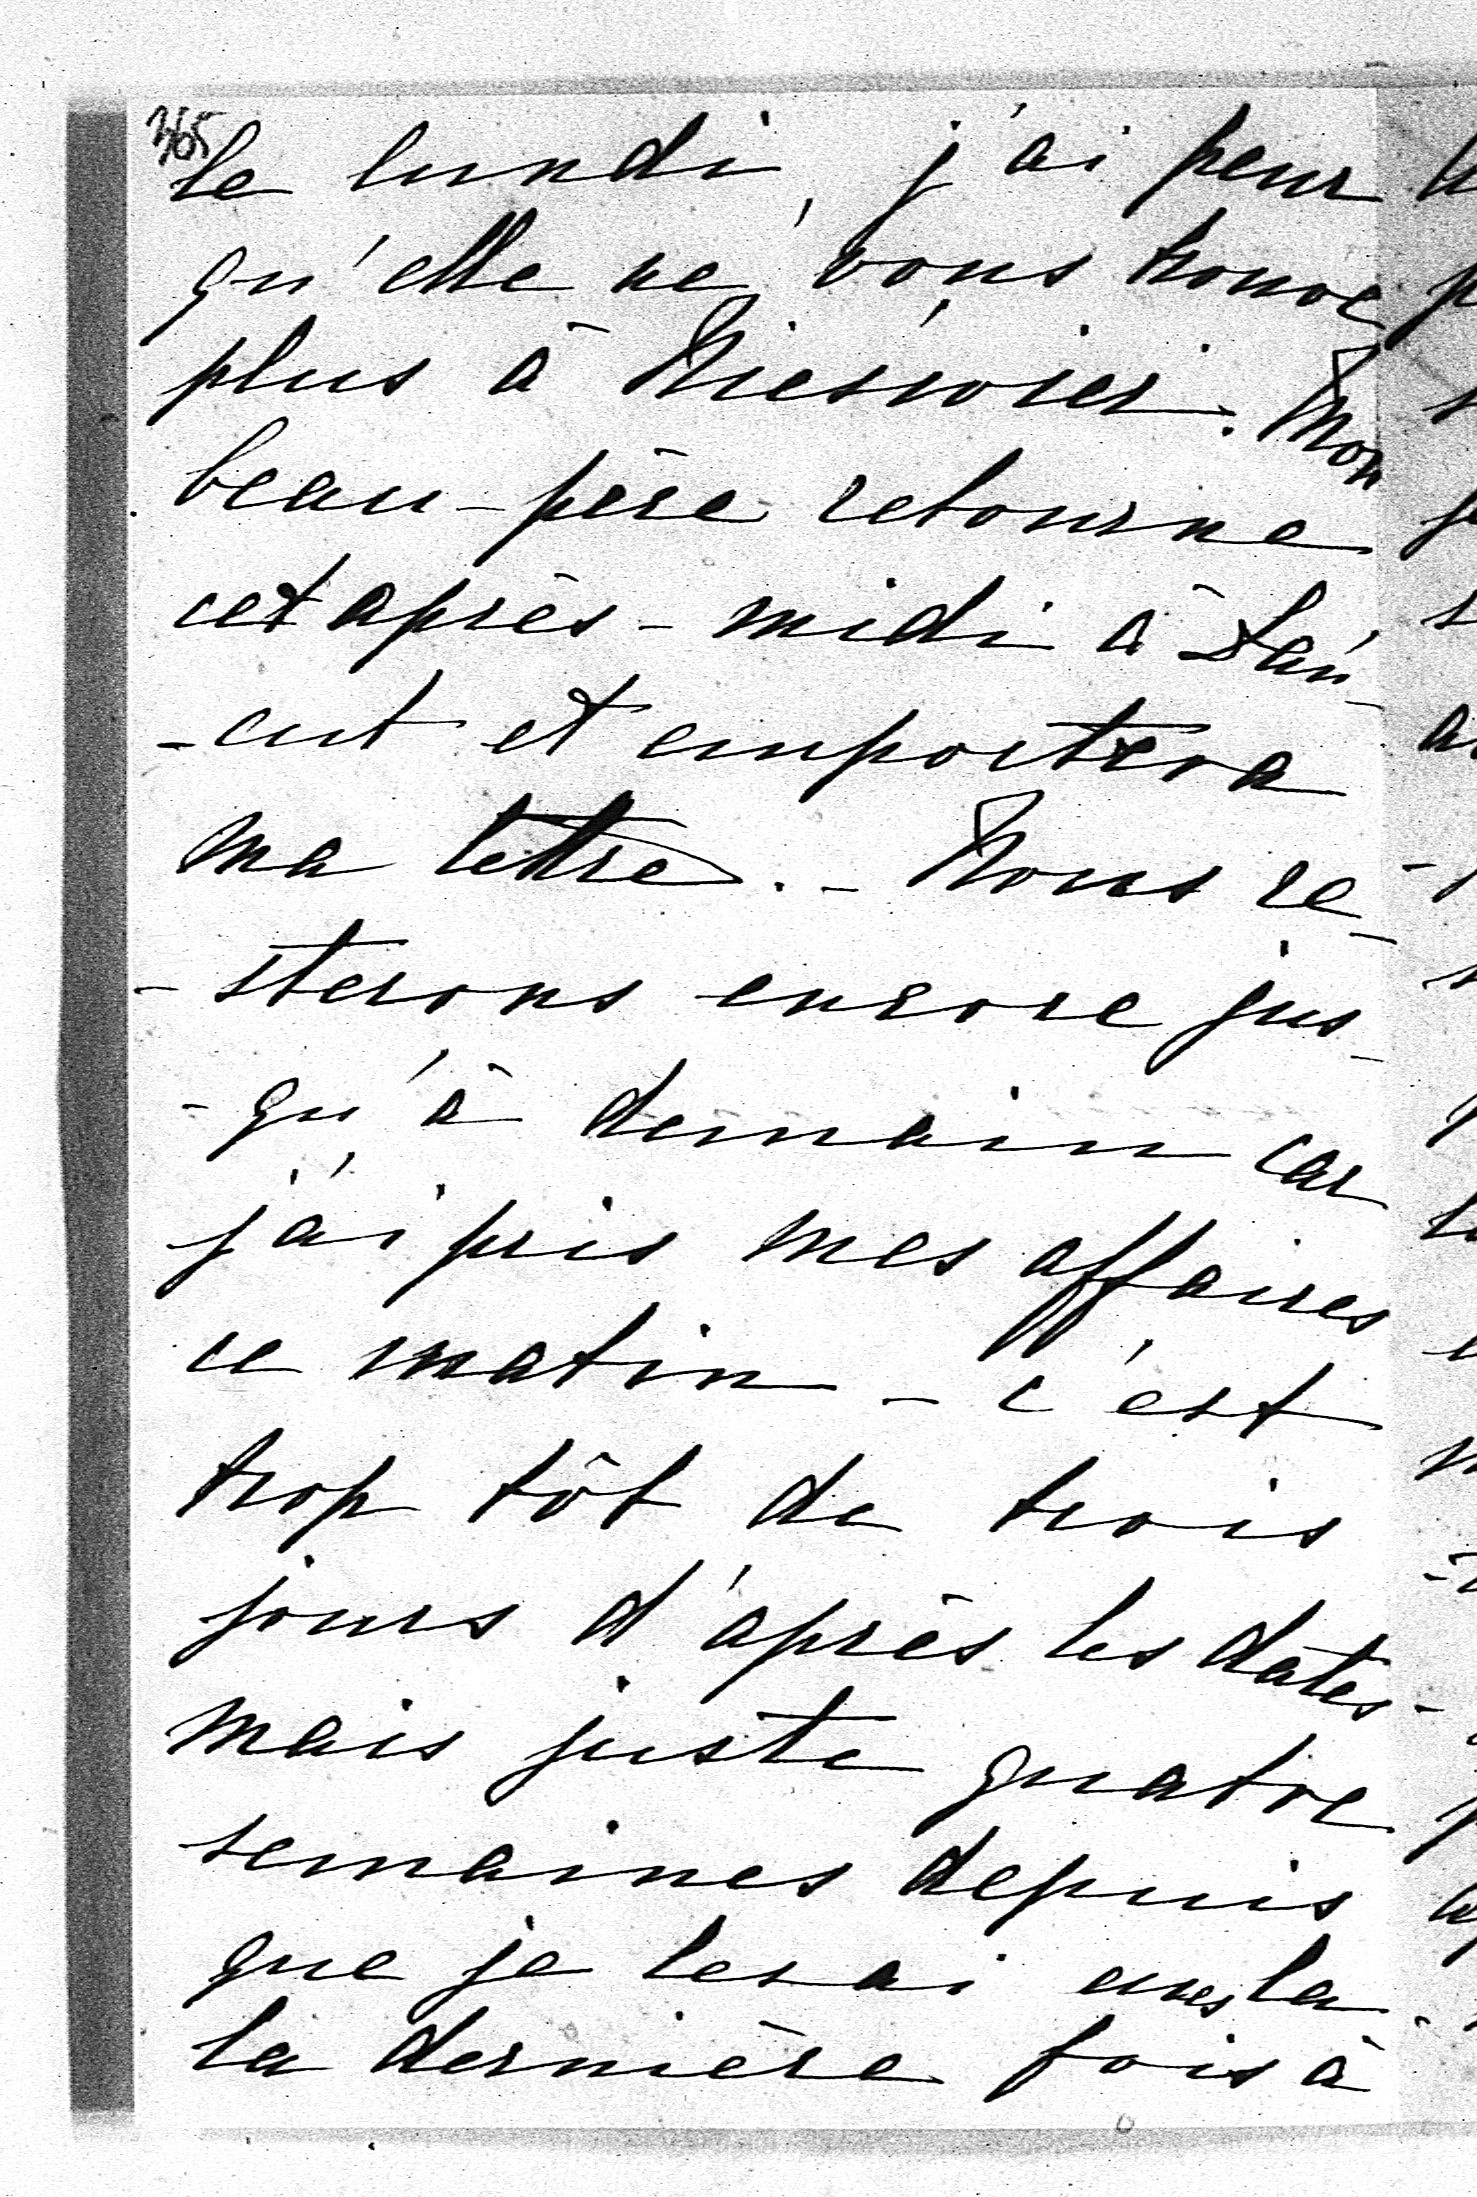 365
le lundi, j'ai peur
qu'elle ne vous trouve
plus à Nieswiez. Mon
beau-père retourne
cet après-midi à Łań-
-cut et emportera
ma lettre. - Nous re-
-sterons encore jus-
-qu'à demain car
j'ai pris mes affaires
ce matin - c'est
trop tôt de trois
jours d'après les dates -
mais juste quatre
semaines depuis
que je les ai eues la
la dernière fois à